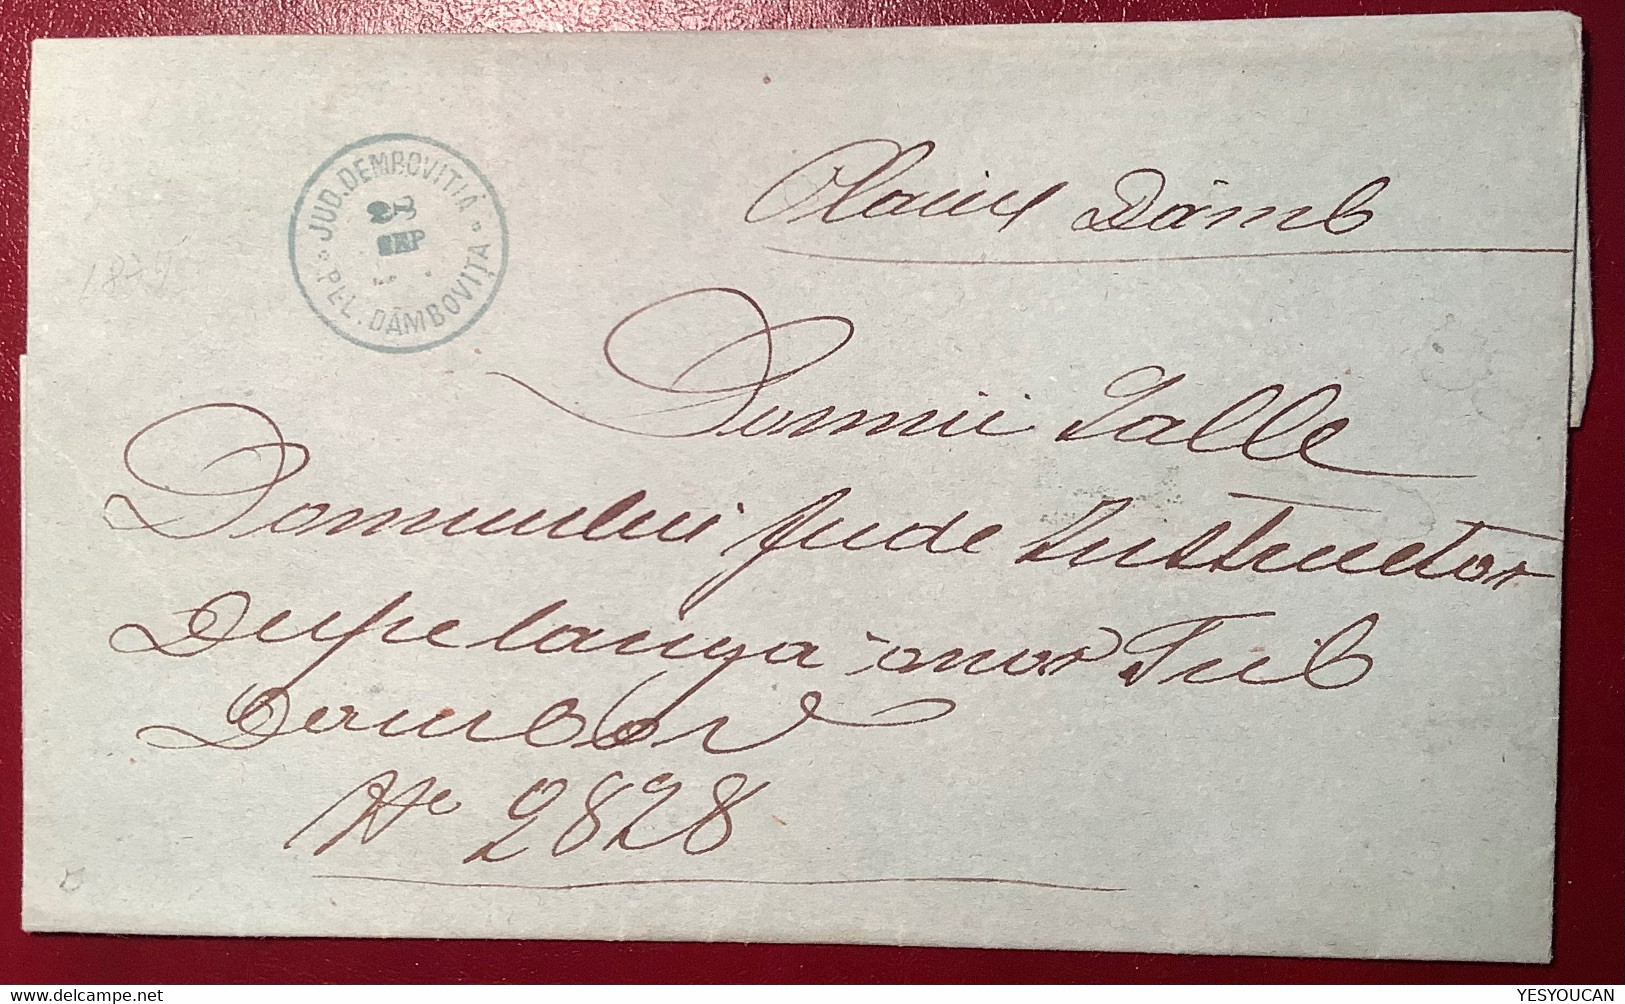 JUD. DEMBOVITIA
SEP
PL-L. DÂMBOVIȚA
Plaiul Dâmb
Domnii Salle
Domnului Jude Instructor
Dupe langa onor Trib
Dambov
No 2828
YESYOUCAN